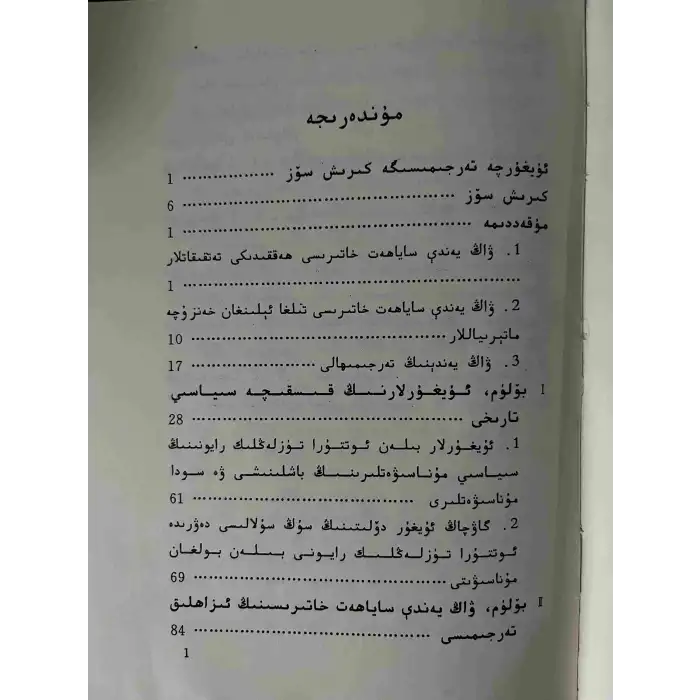 مۇندەرىجە
ئۇيغۇرچە تەرجىمىسىگە كىرىش سۆز ................... 1
كىرىش سۆز ................................................ 6
مۇقەددىمە ................................................ 1
1. ۋاڭ يەندې ساياھەت خاتىرىسى ھەققىدىكى تەتقىقاتلار
................................................ 1
2. ۋاڭ يەندې ساياھەت خاتىرىسى تىلغا ئېلىنغان خەنزۇچە
ماتېرىياللار ................................................ 10
3. ۋاڭ يەندېنىڭ تەرجىمىھالى ......................... 17
I بۆلۈم، ئۇيغۇرلارنىڭ قىسقىچە سىياسىي
تارىخى ................................................ 28
1. ئۇيغۇرلار بىلەن ئوتتۇرا تۈزلەڭلىك رايونىنىڭ
سىياسىي مۇناسىۋەتلىرىنىڭ باشلىنىشى ۋە سودا
مۇناسىۋەتلىرى ................................................ 61
2. گاۋچاڭ ئۇيغۇر دۆلىتىنىڭ سۇڭ سۇلالىسى دەۋرىدە
ئوتتۇرا تۈزلەڭلىك رايونى بىلەن بولغان
مۇناسىۋىتى ................................................ 69
II بۆلۈم، ۋاڭ يەندې ساياھەت خاتىرىسىنىڭ ئىزاھلىق
تەرجىمىسى ................................................ 84
1